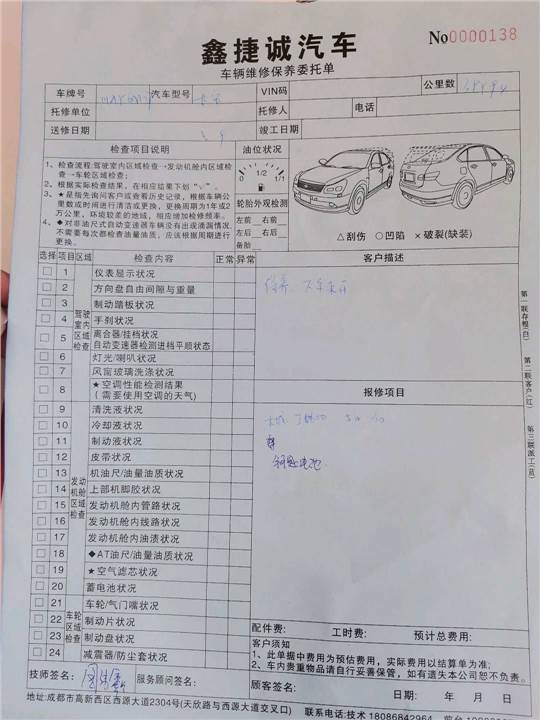 鑫捷诚汽车
No0000138
车辆维修保养委托单
车牌号 汽车型号 VIN码 公里数
托修单位 托修人 电话
送修日期 竣工日期
检查项目说明
1、检查流程:驾驶室内区域检查→发动机舱内区域检查→车轮区域检查;
2、根据实际检查结果,在相应结果下划“√”。
3、★是指先询问客户或查看历史记录,根据车辆公里数或时间进行清洁或更换,更换周期为1年或2万公里,环境较差的地域,相应增加检修频率。
4、◆对非油尺式自动变速器车辆没有出现滴漏情况,不需要每次都检查油量油质,应该根据周期进行更换。
油位状况
0 1/2 1/1
轮胎外观检测
左前 右前
左后 右后
备胎
△刮伤 ○凹陷 ×破裂(缺装)
选择 项目 区域 检查内容 正常 异常
驾驶室内区域检查
1 仪表显示状况
2 方向盘自由间隙与重量
3 制动踏板状况
4 手刹状况
5 离合器/挂档状况
自动变速器检测进档平顺状态
6 灯光/喇叭状况
7 风窗玻璃洗涤状况
8 ★空调性能检测结果
(需要使用空调的天气)
发动机舱区域检查
9 清洗液状况
10 冷却液状况
11 制动液状况
12 皮带状况
13 机油尺/油量油质状况
14 上部机脚胶状况
15 发动机舱内管路状况
16 发动机舱内线路状况
17 发动机舱内油渍状况
18 ◆AT油尺/油量油质状况
19 ★空气滤芯状况
20 蓄电池状况
车轮区域检查
21 车轮/气门嘴状况
22 制动片状况
23 制动盘状况
24 减震器/防尘套状况
客户描述
保养
报修项目
钥匙电池
配件费: 工时费: 预计总费用:
客户须知
1、此单据中费用为预估费用,实际费用以结算单为准;
2、车内贵重物品请自行妥善保管,如有遗失本公司恕不负责。
技师签名: 服务顾问签名: 顾客签名: 日期: 年 月 日
地址:成都市高新西区西源大道2304号(天欣路与西源大道交叉口)
联系电话:技术
第一联存根(白)
第二联客户(红)
第三联派工(黄)